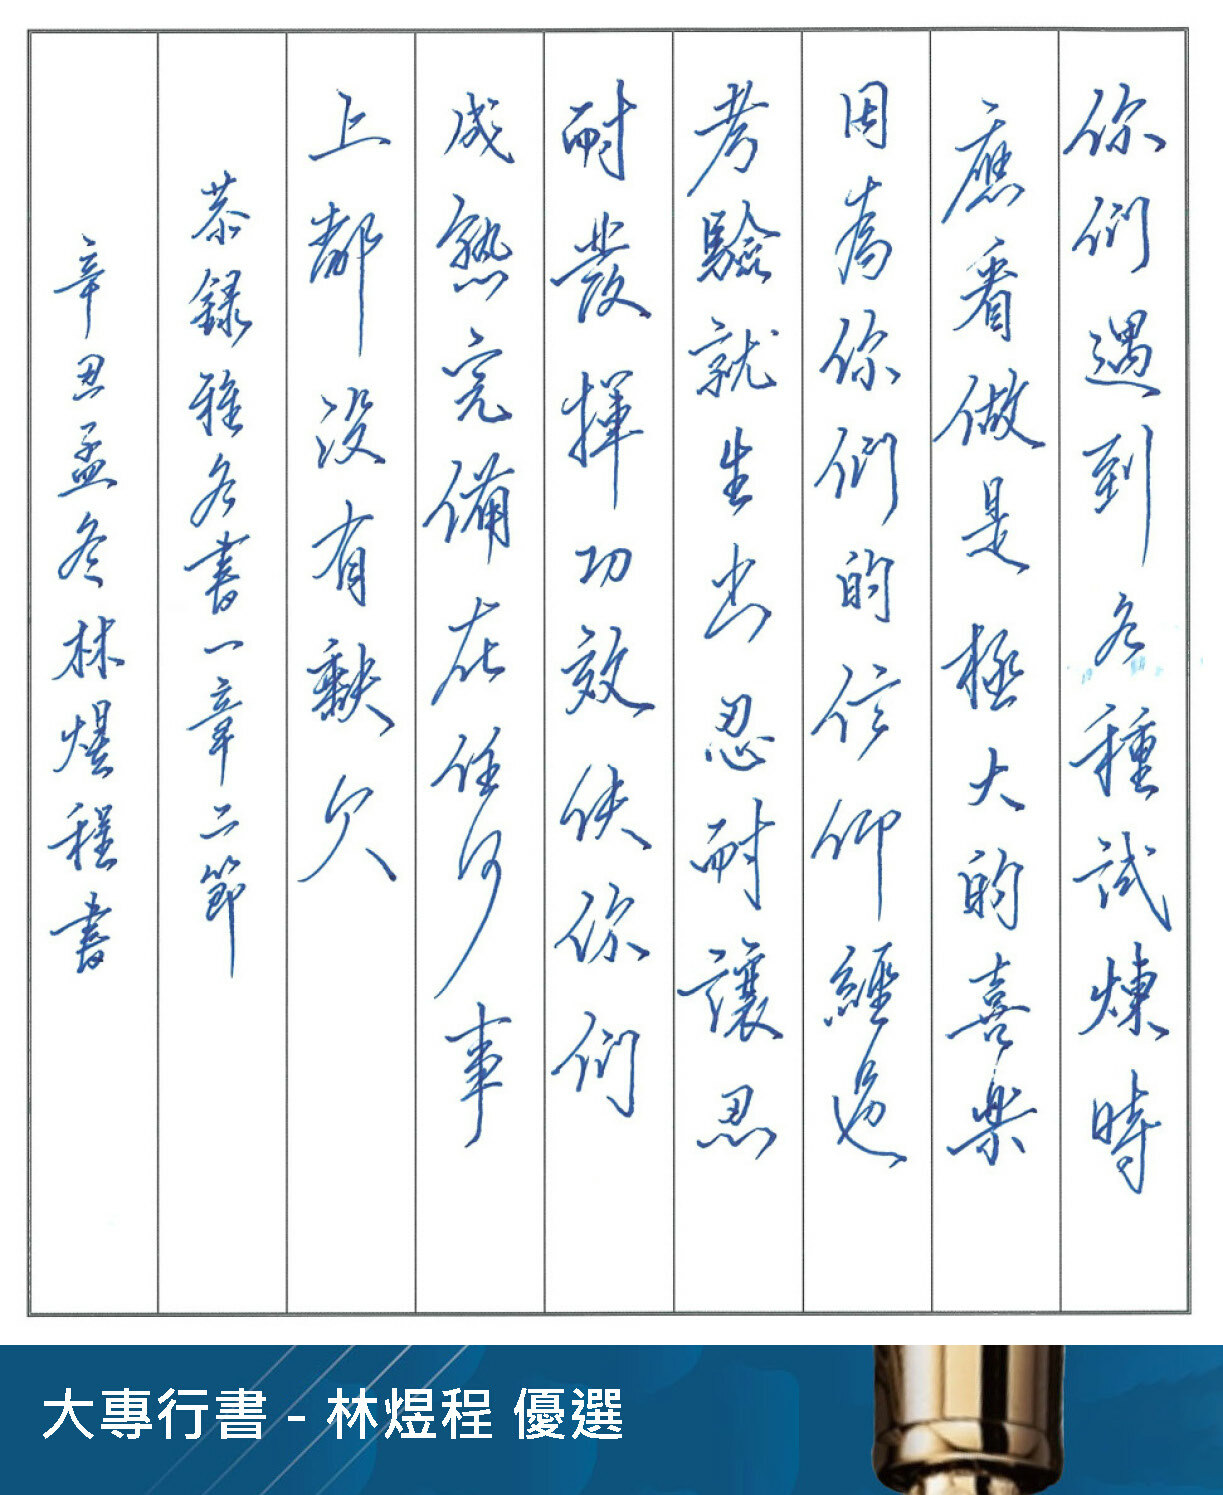 你們遇到各種試煉時
應看做是極大的喜樂
因為你們的信仰經過
考驗就生出忍耐讓忍
耐發揮功效使你們
成熟完備在任何事
上都沒有缺欠
恭錄雅各書一章二節
辛丑孟冬林煜程書
大專行書 - 林煜程 優選